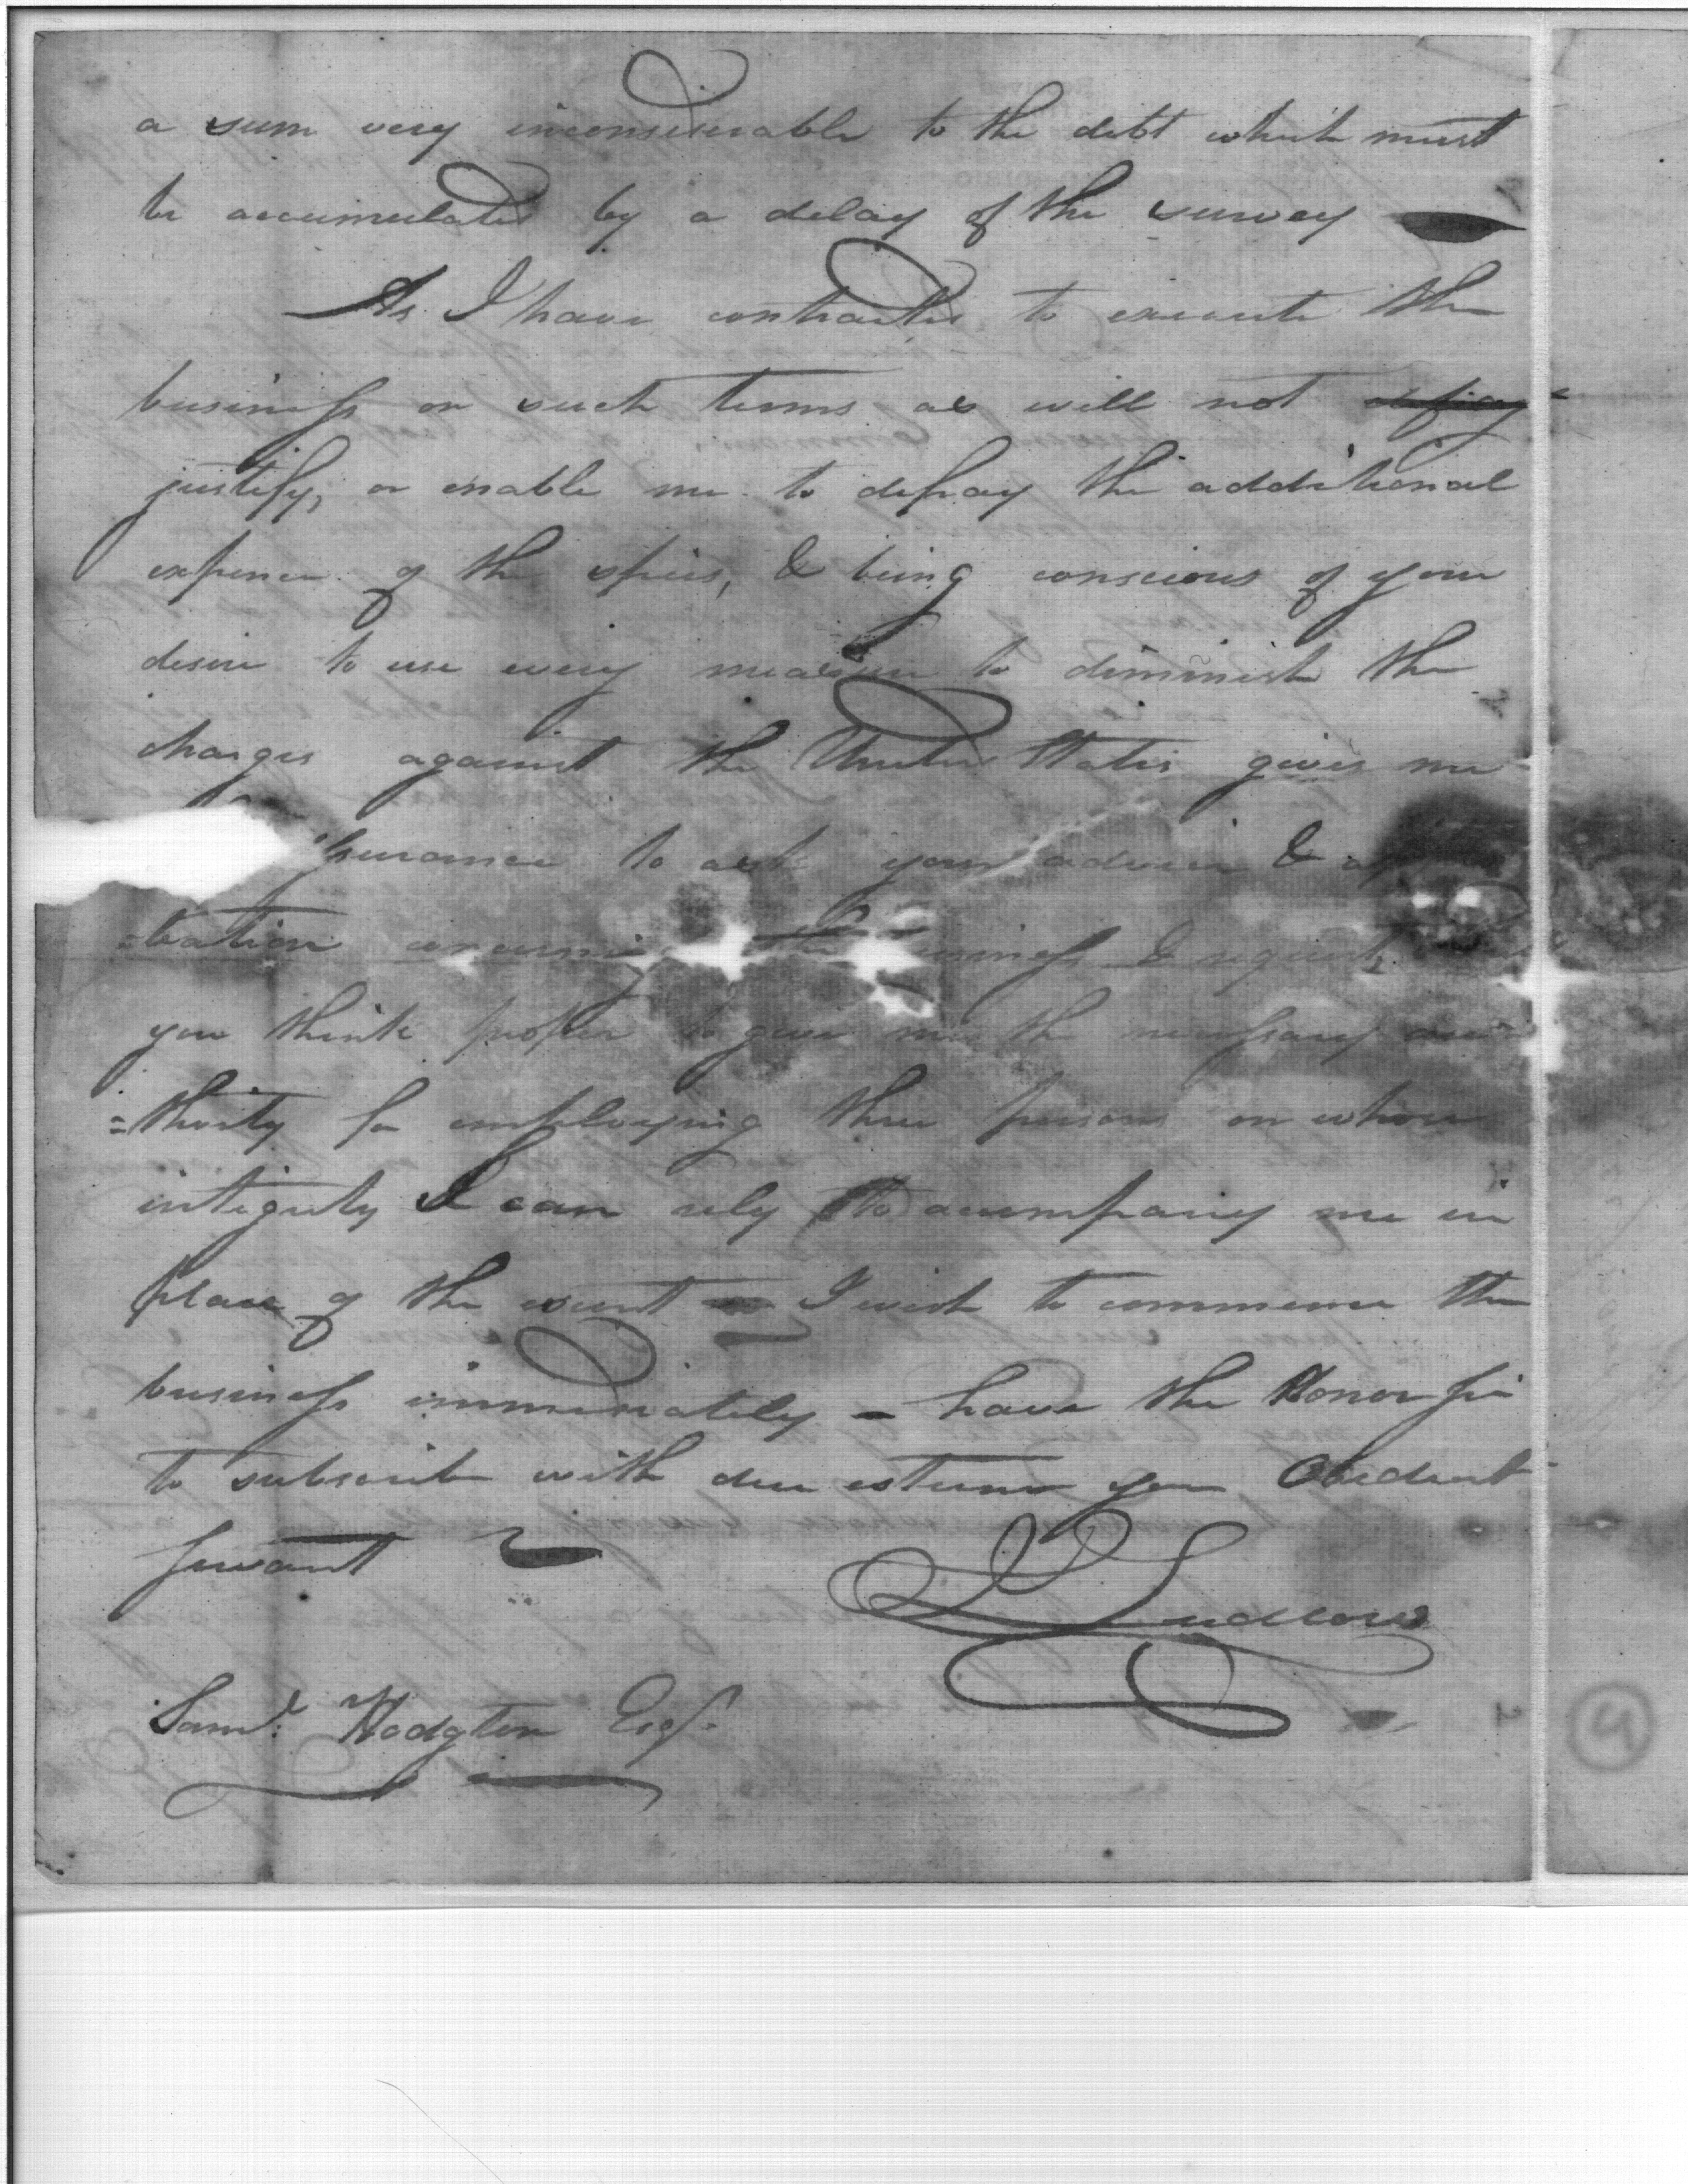 a sum very inconsiderable to the debt which must
be accumulated by a delay of the survey
As I have contracted to execute the
business on such terms as will not defray
justify, or enable me to defray the additional
expence of the spies, & being conscious of your
desire to use every measure to diminish the
charges against the United States gives me
surance to ask your advice &
=bation concerning the business & request
you think proper to give me the necessary au
=thority for employing three persons on whose
integrity I can rely to accompany me in
place of the escort I wish to commence the
business immediately - have the Honor sir
to subscribe with due esteem your Obedient
servant
I Ludlow
Saml. Hodgton Esqr.
9